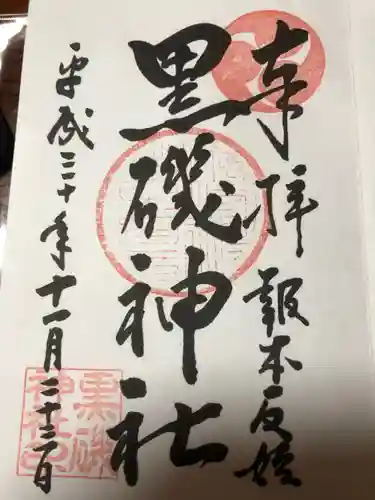 奉拝
報本反始
黒磯神社
平成三十年十一月二十三日
黒磯
神社